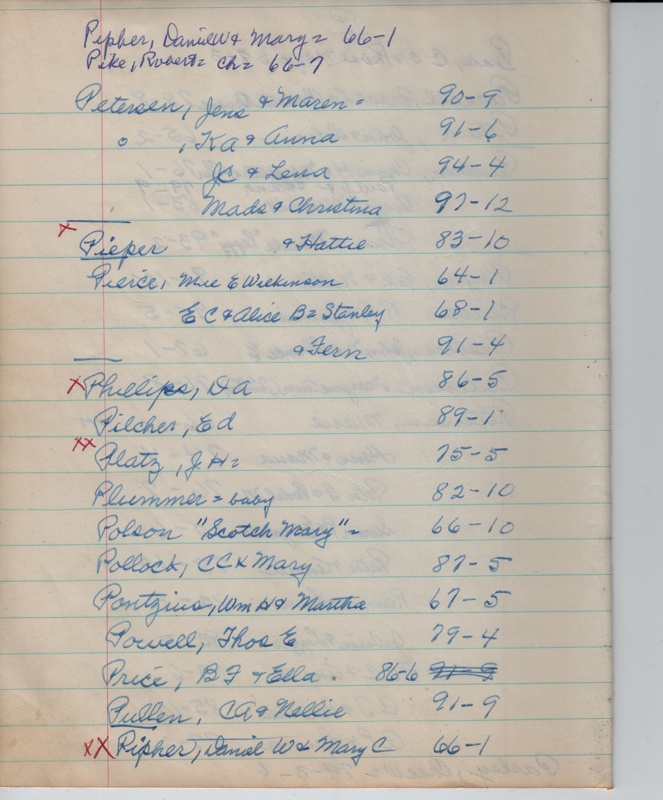 Pepher, Daniel W & Mary = 66-1
Pike, Robert = Ch = 66-7
Petersen, Jens & Maren = 90-9
" , KA & Anna 91-6
JC & Lena 94-4
Mads & Christina 97-12
x Pieper & Hattie 83-10
Pierce, Mrs E Wilkinson 64-1
E C & Alice B = Stanley 68-1
& Fern 91-4
x Phillips, DA 86-5
Pilcher, Ed 89-1
xx Platz, J H = 75-5
Plummer = baby 82-10
Polson "Scotch Mary" = 66-10
Pollock, CC & Mary 87-5
Pontzius, Wm H & Martha 67-5
Powell, Thos E 79-4
Price, B F & Ella 86-6 91-9
Pullen, CA & Nellie 91-9
xx Pipher, Daniel W & Mary C 66-1